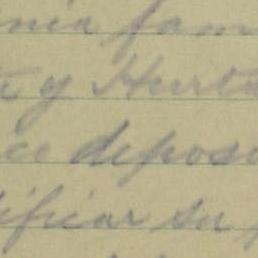 nia fam
a y Hurta
ce deposo
ificar su p